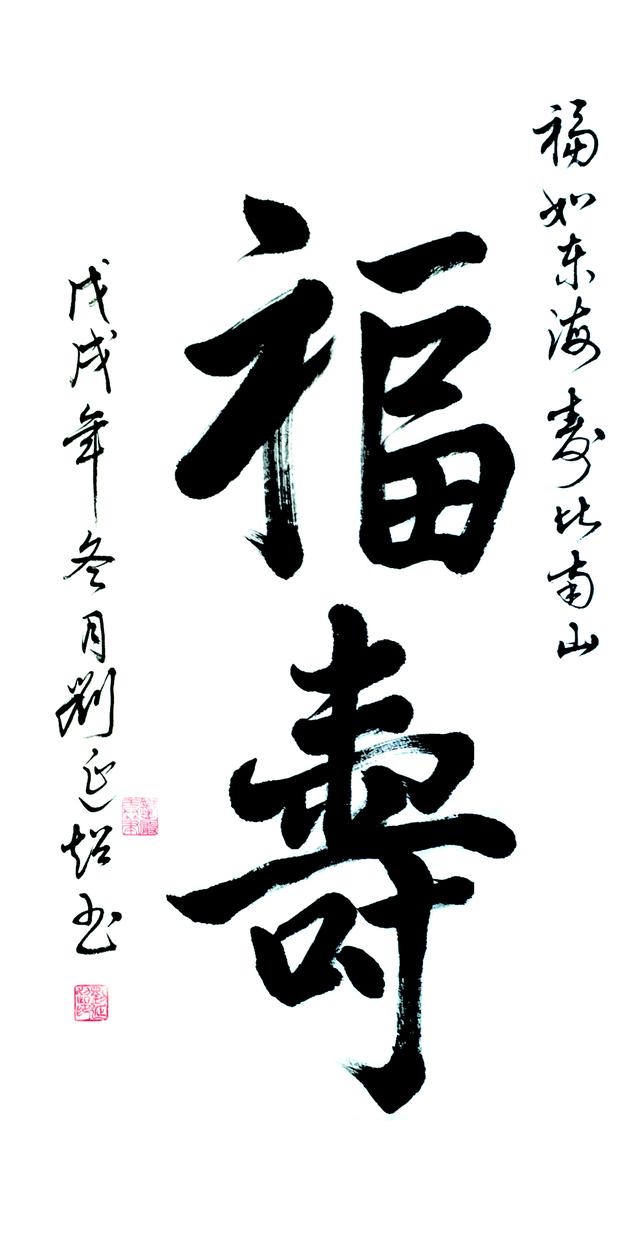 福如东海寿比南山
福寿
戊戌年冬月劉延超书